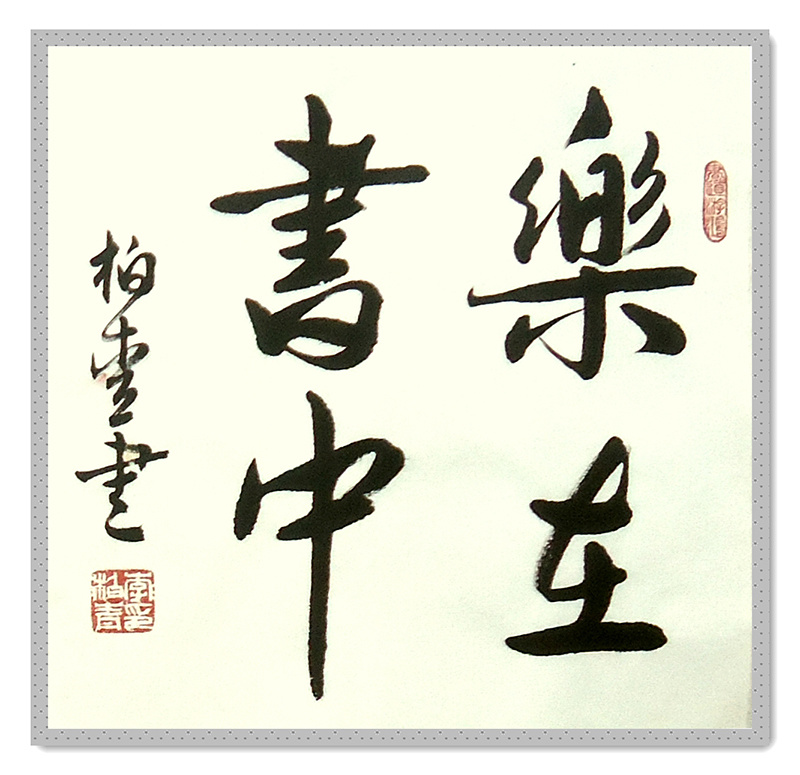 樂在
書中
柏壹書